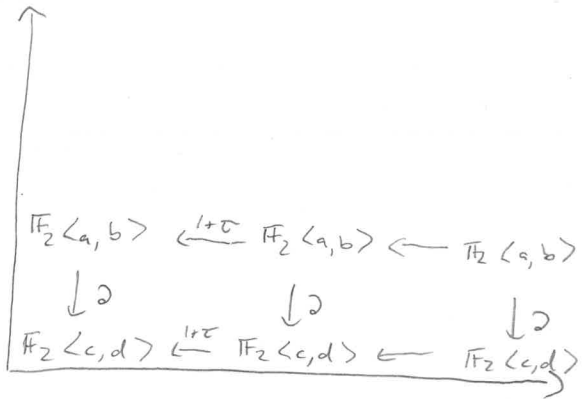 𝔽₂<a,b> ←1+τ 𝔽₂<a,b> ← 𝔽₂<a,b>
↓∂ ↓∂ ↓∂
𝔽₂<c,d> ←1+τ 𝔽₂<c,d> ← 𝔽₂<c,d>